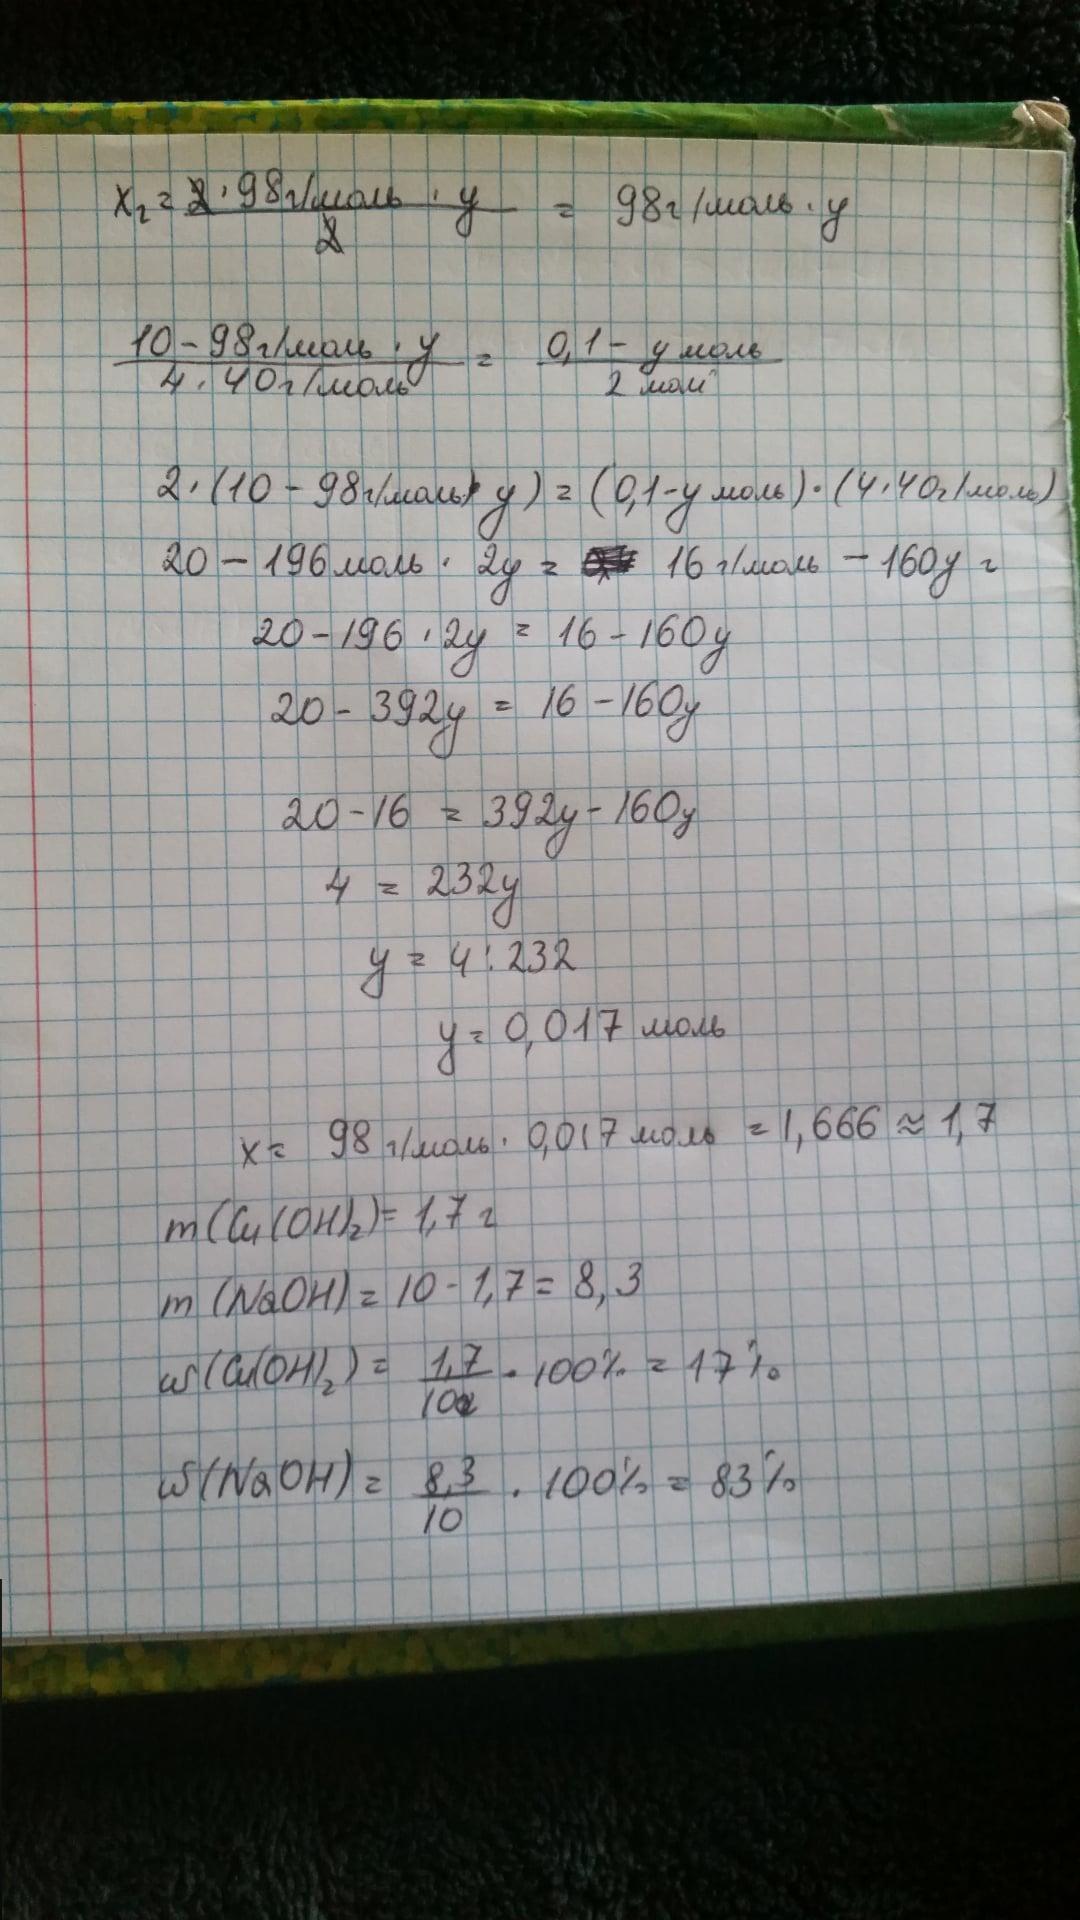 x₂ = 2 · 98 г/моль · y / 2 = 98 г/моль · y
10 - 98 г/моль · y / 4 · 40 г/моль = 0,1 - y моль / 2 мол
2 · (10 - 98 г/моль · y) = (0,1 - y моль) · (4 · 40 г/моль)
20 - 196 моль · 2y = 16 г/моль - 160y =
20 - 196 · 2y = 16 - 160y
20 - 392y = 16 - 160y
20 - 16 = 392y - 160y
4 = 232y
y = 4 : 232
y = 0,017 моль
x = 98 г/моль · 0,017 моль = 1,666 ≈ 1,7
m(Cu(OH)₂) = 1,7 г
m(NaOH) = 10 - 1,7 = 8,3
ω(Cu(OH)₂) = 1,7 / 10г · 100% = 17%
ω(NaOH) = 8,3 / 10 · 100% = 83%